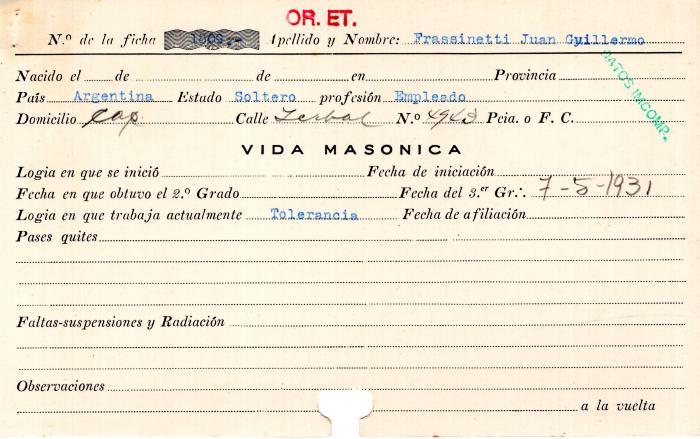 OR. ET.
N.º de la ficha 1809.- Apellido y Nombre: Frassinetti Juan Guillermo
DATOS IMCOMP.
Nacido el de de en Provincia
País Argentina Estado Soltero profesión Empleado
Domicilio Cap Calle Yerbal N.º 4943 Pcia. o F. C.
VIDA MASONICA
Logia en que se inició Fecha de iniciación
Fecha en que obtuvo el 2.º Grado Fecha del 3.er Gr∴ 7-5-1931
Logia en que trabaja actualmente Tolerancia Fecha de afiliación
Pases quites
Faltas-suspensiones y Radiación
Observaciones
a la vuelta